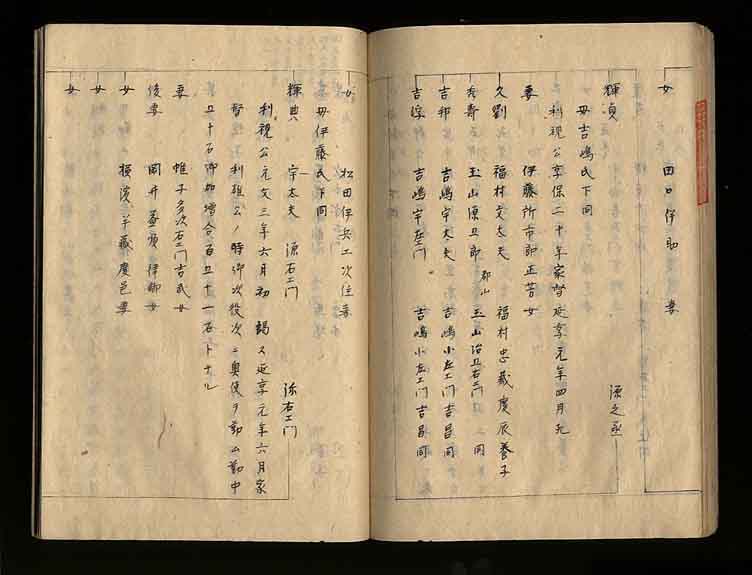 女 田口伊助妻
輝貞 源之丞
母吉嶋氏下同
利視公享保二十年家督延享元年四月死
妻 伊藤所市郎正苦女
久劉 福村文太夫 福村忠蔵慶辰養子
秀寿 玉山源五郎 郡山 玉山治五右エ門 同
吉邦 吉嶋宇太夫 吉嶋小左エ門吉昌同
吉 吉嶋宇左エ門 吉嶋小左エ門吉昌同
女 松田伊兵エ次住妻
母伊藤氏下同
輝典 宇太夫 源右エ門 弥右エ門
利視公元文三年六月初 謁ス延享元年六月家
督 利雄公ノ時御次役次ニ奥使ヲ勤ム勤中
五十石御加増合百五十一石トナル
妻 帷子多次右エ門吉武女
後妻 岡井 律郷女
女 横濱半蔵慶邑妻
女
女